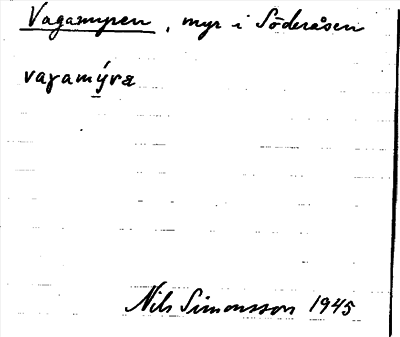 Vagamyren, myr i Söderåsen
vagamýræ
Nils Simonsson 1945